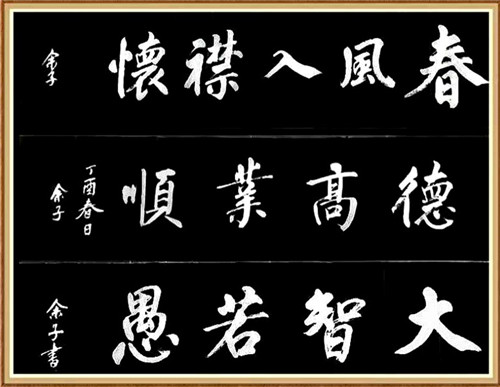 春風入襟懷
余子
德高業順
丁酉春日
余子
大智若愚
余子書